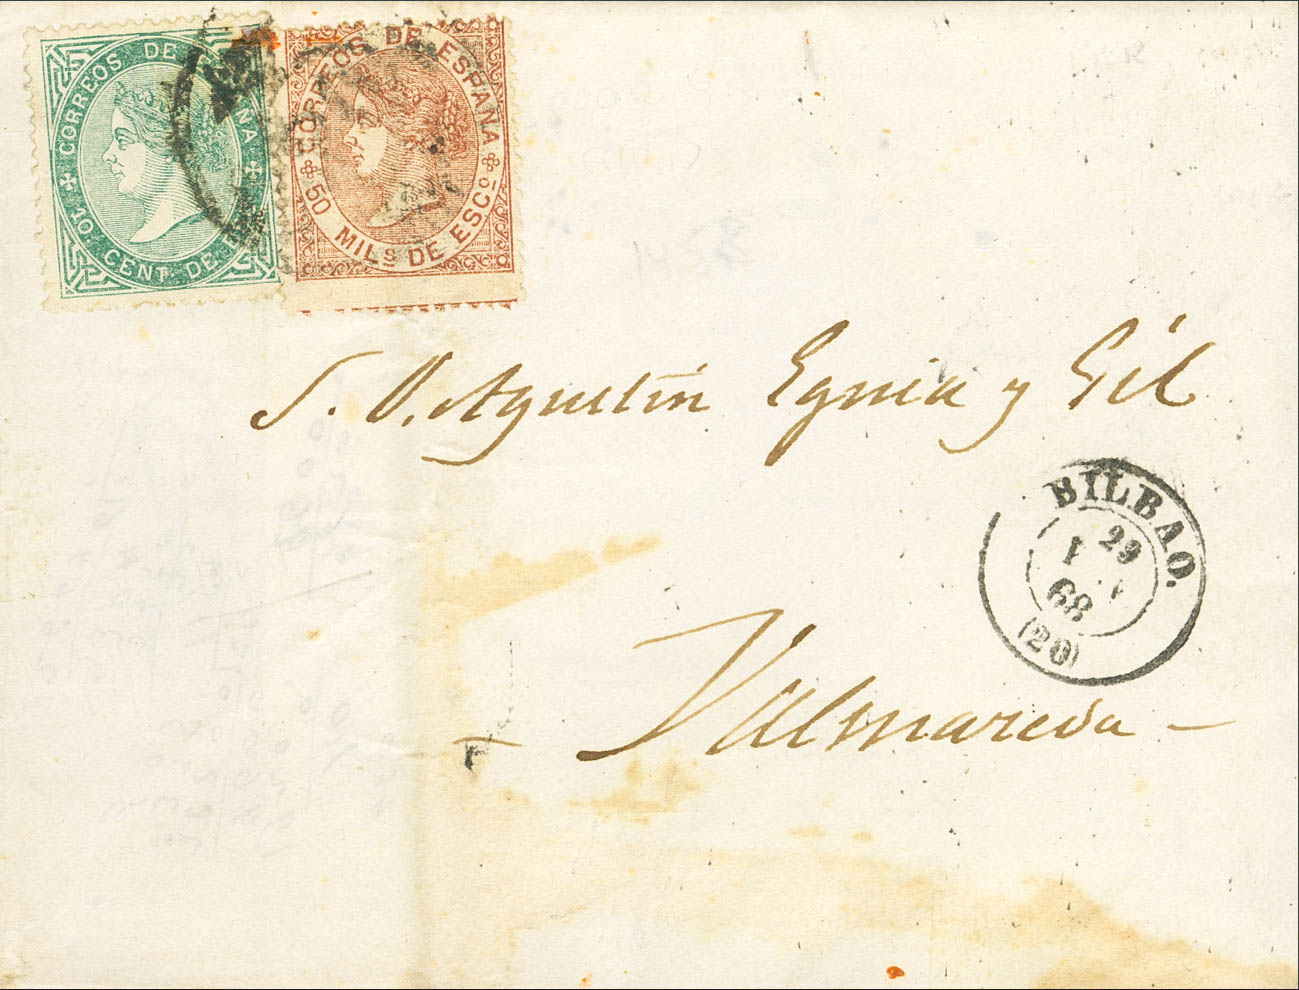 CORREOS DE ESPAÑA
10. CENT. DE
CORREOS DE ESPAÑA
50 MILS DE ESCO
S. D. Agustin Eguia y Gil
BILBAO.
29
68
(20)
Valmaseda